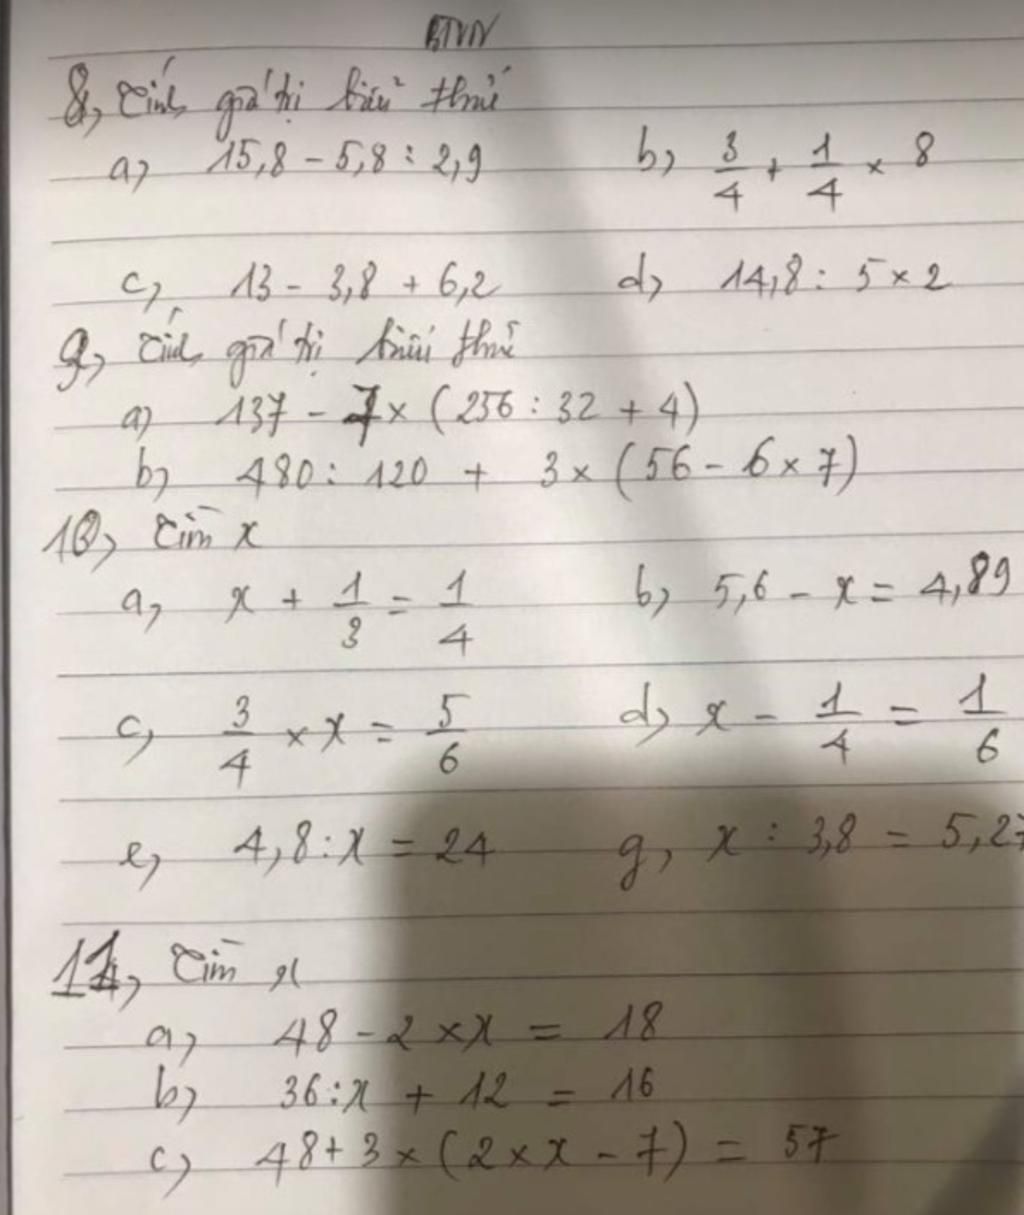 BTVN
8, Tính giá trị biểu thức
a, 15,8 - 5,8 : 2,9 b, 3/4 + 1/4 × 8
c, 13 - 3,8 + 6,2 d, 14,8 : 5 × 2
9, Tính giá trị biểu thức
a) 137 - 7 × (256 : 32 + 4)
b) 480 : 120 + 3 × (56 - 6 × 7)
10, Tìm x
a, x + 1/3 = 1/4 b, 5,6 - x = 4,89
c, 3/4 × x = 5/6 d, x - 1/4 = 1/6
e, 4,8 : x = 24 g, x : 3,8 = 5,27
11, Tìm x
a, 48 - 2 × x = 18
b, 36 : x + 12 = 16
c, 48 + 3 × (2 × x - 7) = 57